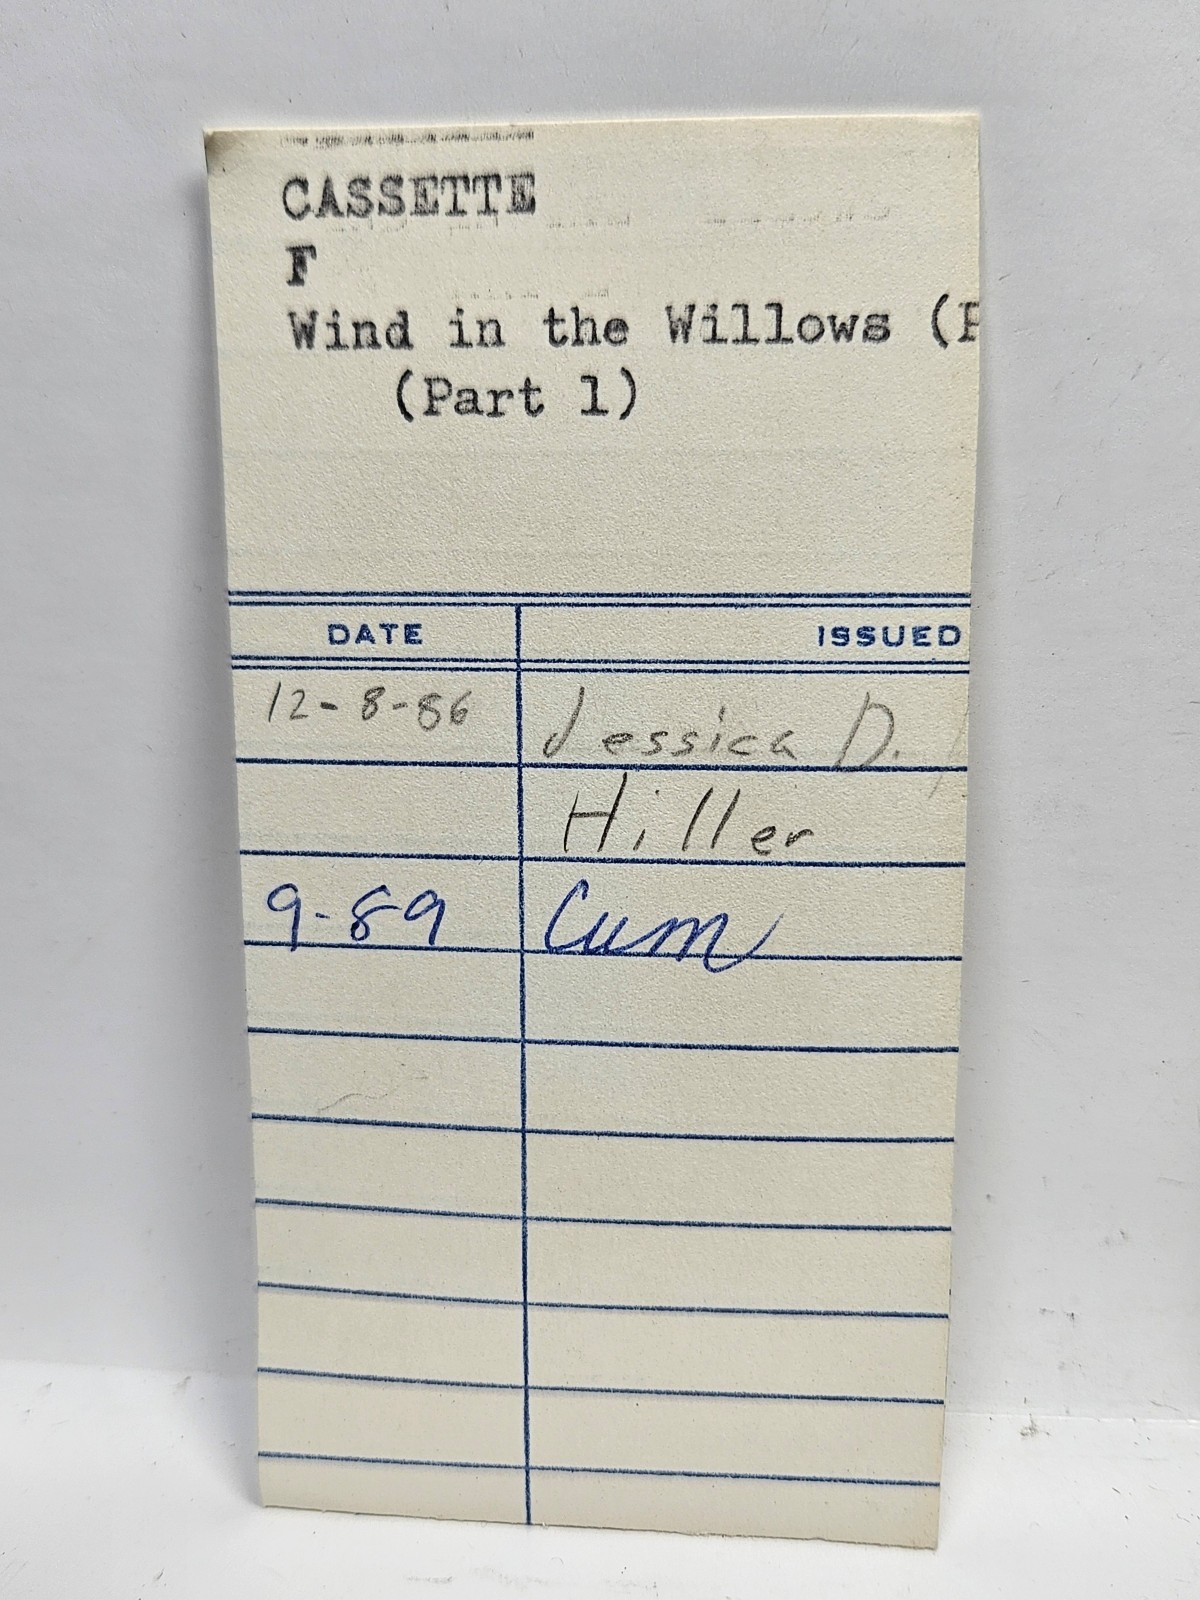 CASSETTE
F
Wind in the Willows (P
(Part 1)
DATE ISSUED
12-8-86 Jessica D.
Hiller
9-89 Cum